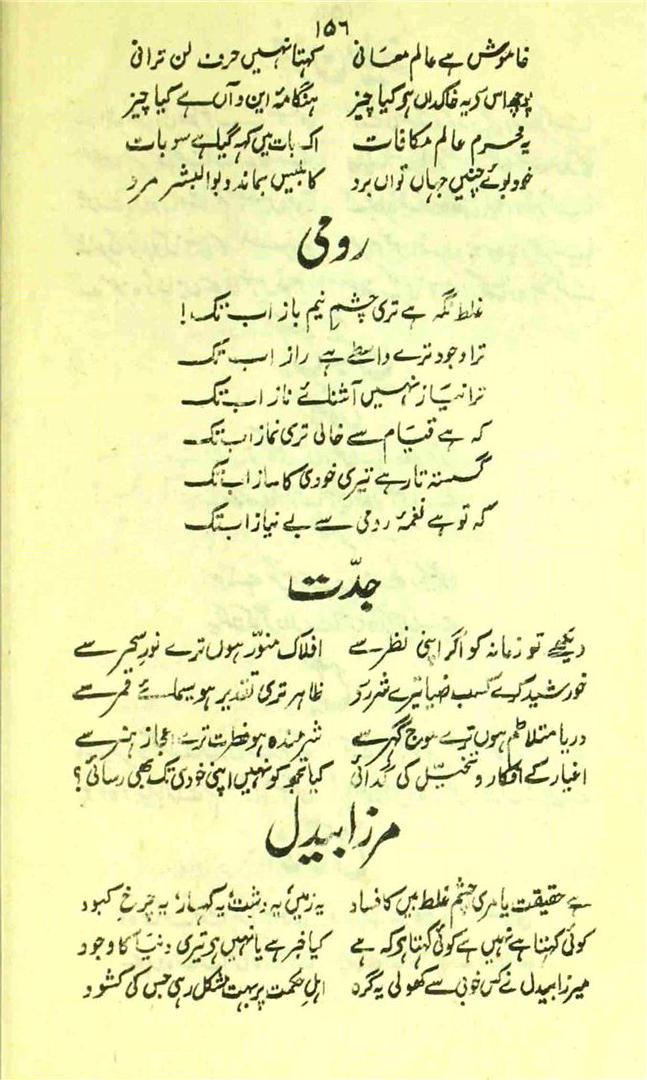 ۱۵۶
خاموش ہے عالم معانی کہتا نہیں حرف لن ترانی
پوچھ اس سے یہ خاکداں ہے کیا چیز ہنگامۂ این و آں ہے کیا چیز
یہ محرم عالم مکافات اک بات میں کہہ گیا ہے سو بات
خود بوئے چنیں جہاں تواں برد کابلیس بماند و بوالبشر مرد
رومی
غلط نگہ ہے تری چشمِ نیم باز اب تک!
ترا وجود ترے واسطے ہے راز اب تک
ترا نیاز نہیں آشنائے ناز اب تک
کہ ہے قیام سے خالی تری نماز اب تک
گسستہ تار ہے تیری خودی کا ساز اب تک
کہ تو ہے نغمۂ رومی سے بے نیاز اب تک
جدّت
دیکھے تو زمانہ کو اگر اپنی نظر سے افلاک منوّر ہوں ترے نورِ سحر سے
خورشید کرے کسب ضیا تیرے شرر سے ظاہر تری تقدیر ہو سیمائے قمر سے
دریا متلاطم ہوں ترے موج گہر سے شرمندہ ہو فطرت ترے اعجاز ہنر سے
اغیار کے افکار و تخیّل کی گدائی کیا تجھ کو نہیں اپنی خودی تک بھی رسائی؟
مرزا بیدل
ہے حقیقت یا مری چشم غلط بیں کا فساد یہ زمیں یہ دشت یہ کہسار یہ چرخ کبود
کوئی کہتا ہے نہیں ہے کوئی کہتا ہے کہ ہے کیا خبر ہے یا نہیں ہے تیری دنیا کا وجود
میرزا بیدل نے کس خوبی سے کھولی یہ گرہ اہلِ حکمت پر بہت مشکل رہی جس کی کشود